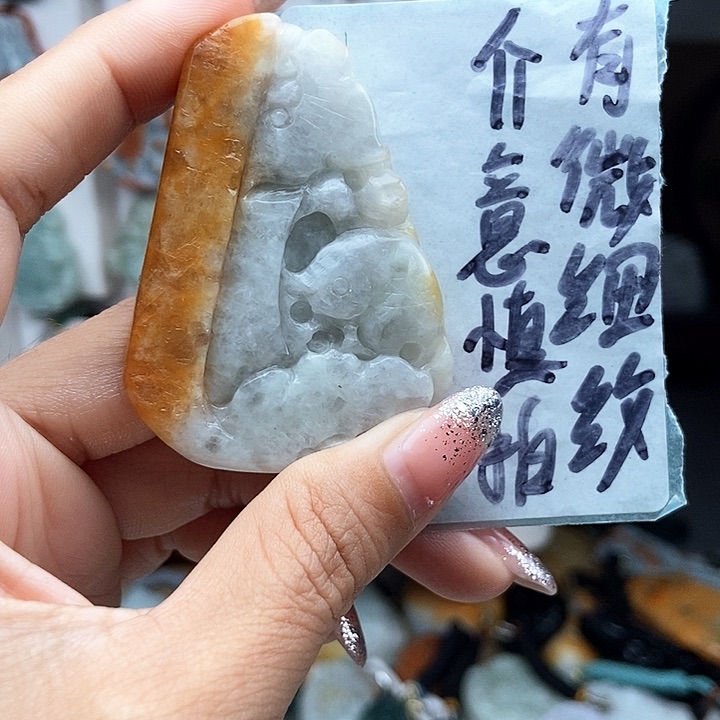 有微细纹
介意慎拍